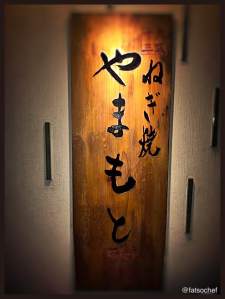 ねぎ焼
やまもと
@fatsochef